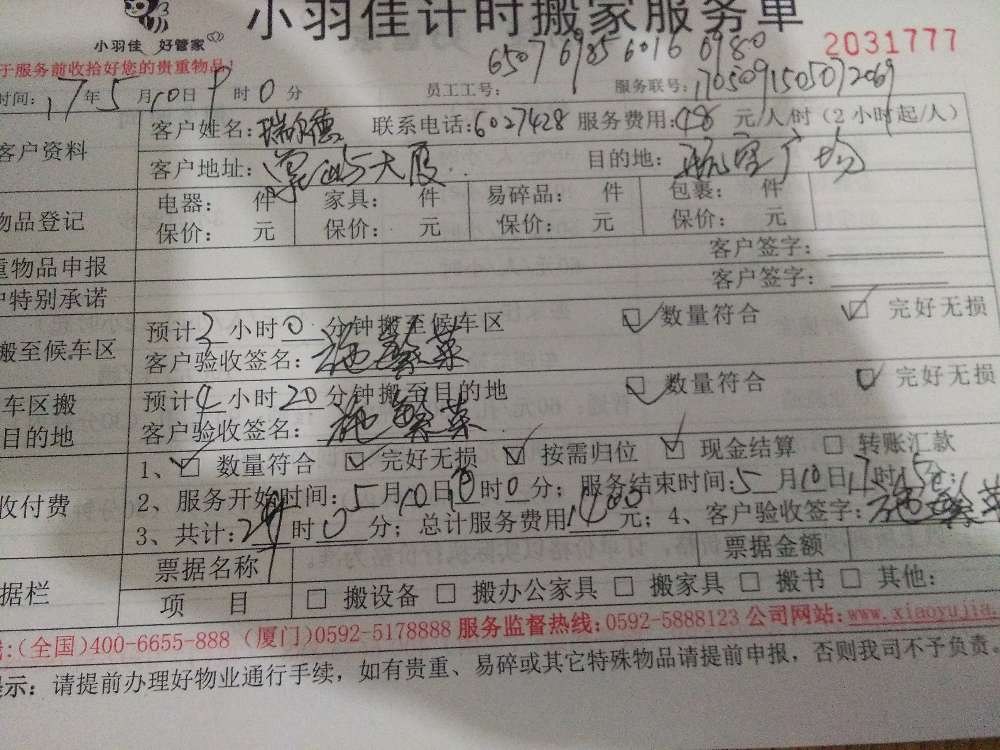 小羽佳计时搬家服务单
小羽佳 好管家
2031777
于服务前收拾好您的贵重物品!
6507 6985 6016 6980
时间: 17年5月10日9时0分 员工工号: 服务联号: 1705091505072069
客户资料
客户姓名: 瑞尔德 联系电话: 6027428 服务费用: 48 元/人/时 (2小时起/人)
客户地址: 大厦 目的地: 航空广场
物品登记
电器: 件 家具: 件 易碎品: 件 包裹: 件
保价: 元 保价: 元 保价: 元 保价: 元
重物品申报 客户签字:
户特别承诺 客户签字:
搬至候车区
预计3小时0分钟搬至候车区 数量符合 完好无损
客户验收签名: 施黎菜
车区搬
目的地
预计4小时20分钟搬至目的地 数量符合 完好无损
客户验收签名: 施黎菜
收付费
1、 数量符合 完好无损 按需归位 现金结算 转账汇款
2、服务开始时间: 5月10日 时0分; 服务结束时间: 5月10日17时45分;
3、共计: 时0分; 总计服务费用1400元; 4、客户验收签字: 施黎菜
据栏
票据名称 票据金额
项 目 搬设备 搬办公家具 搬家具 搬书 其他:
:(全国)400-6655-888 (厦门)0592-5178888 服务监督热线:0592-5888123 公司网站:www.xiaoyujia.
提示: 请提前办理好物业通行手续,如有贵重、易碎或其它特殊物品请提前申报,否则我司不予负责。